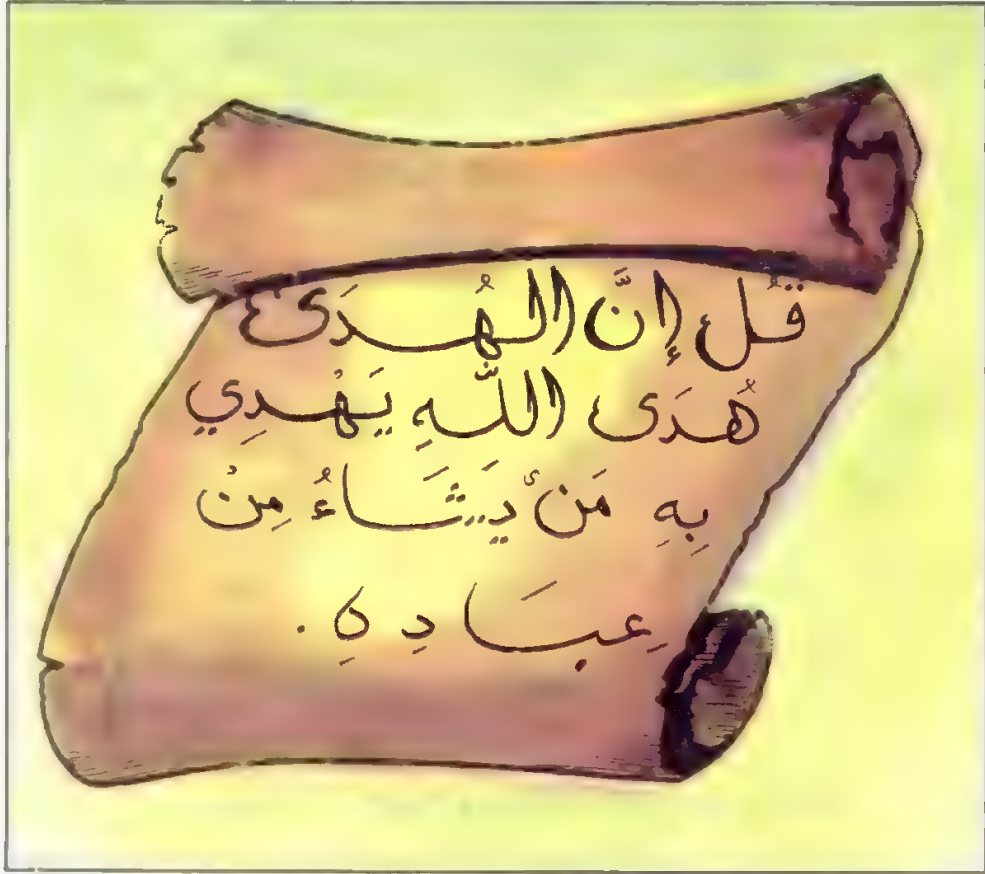 قُل إِنَّ الهُدَى
هُدَى اللَّهِ يَهْدِي
بِهِ مَنْ يَشَاءُ مِنْ
عِبَادِهِ .